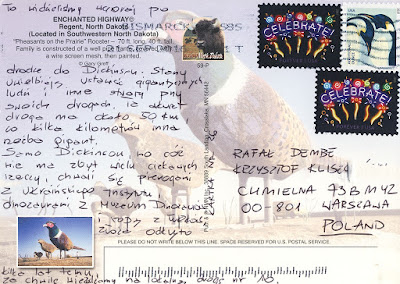 To widzieliśmy wczoraj po
ENCHANTED HIGHWAY®
Regent, North Dakota
(Located in Southwestern North Dakota)
"Pheasants on the Prairie" Rooster – 70 ft. long, 40 ft. tall
Family is constructed of a well pipe frame, covered with
a wire screen mesh, then painted.
BISMARCK
drodze do Dickinson. Stany
uwielbiają ustawiać gigantycznych
ludzi i inne stwory przy
swoich drogach, ta akurat
droga ma około 50 km
co kilka kilometrów inna
rzeźba gigant.
Samo Dickinson no cóż
nie ma zbyt wielu ciekawych
rzeczy, chwali się pierogami
z Ukraińskiego Instytutu
dinozaurami z Muzeum Dinozaurów
i ropy z
kilka lat temu,
za chwilę
nr 10.
CELEBRATE!
CELEBRATE!
KARTKA NR
RAFAŁ DEMBE
KRZYSZTOF KLISZA
CHMIELNA 73B M 42
00-801 WARSZAWA
POLAND
PLEASE DO NOT WRITE BELOW THIS LINE. SPACE RESERVED FOR U.S. POSTAL SERVICE.